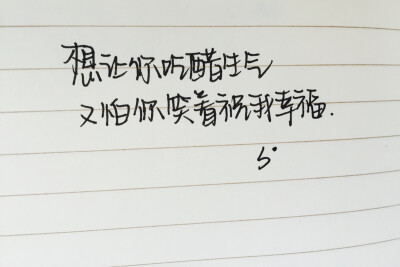 想让你吃醋生气
又怕你笑着祝我幸福.